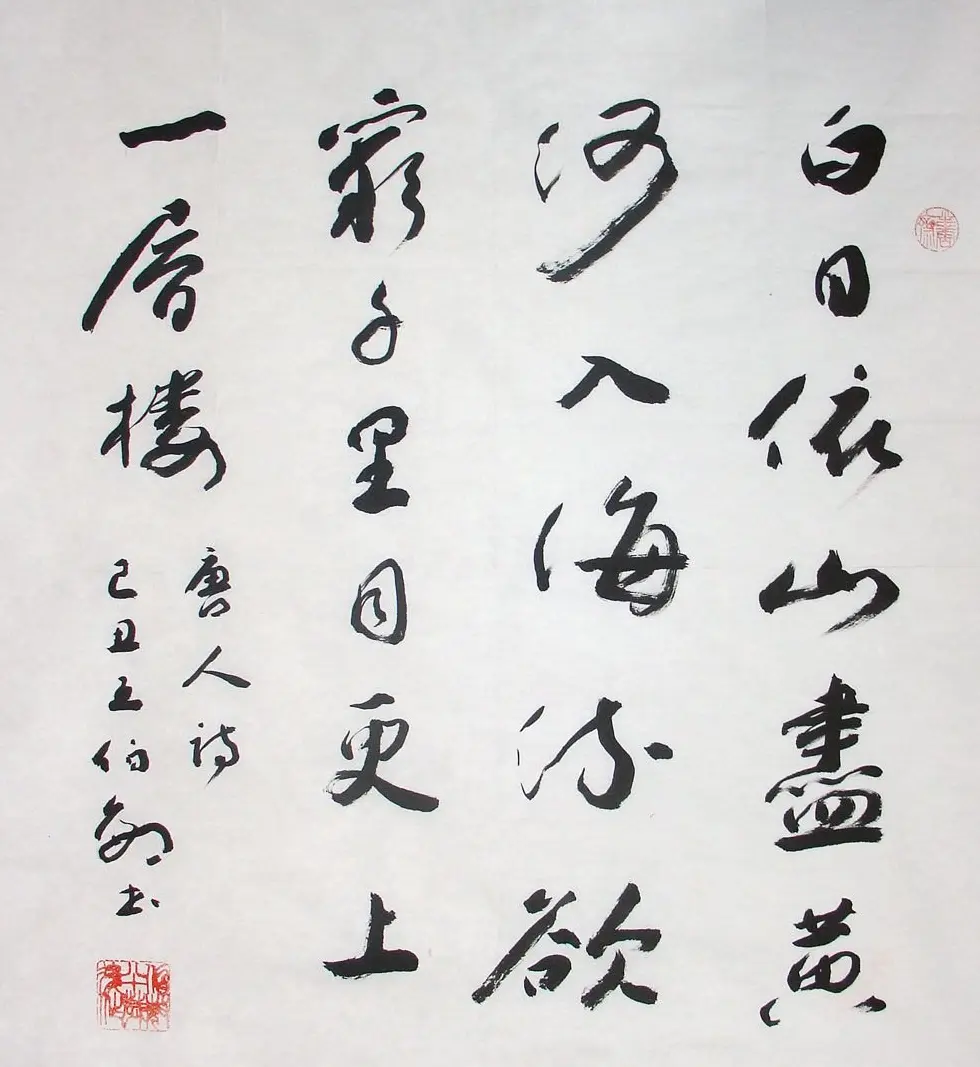 白日依山盡黃
河入海流欲
窮千里目更上
一層楼
唐人詩
己丑王伯勋书